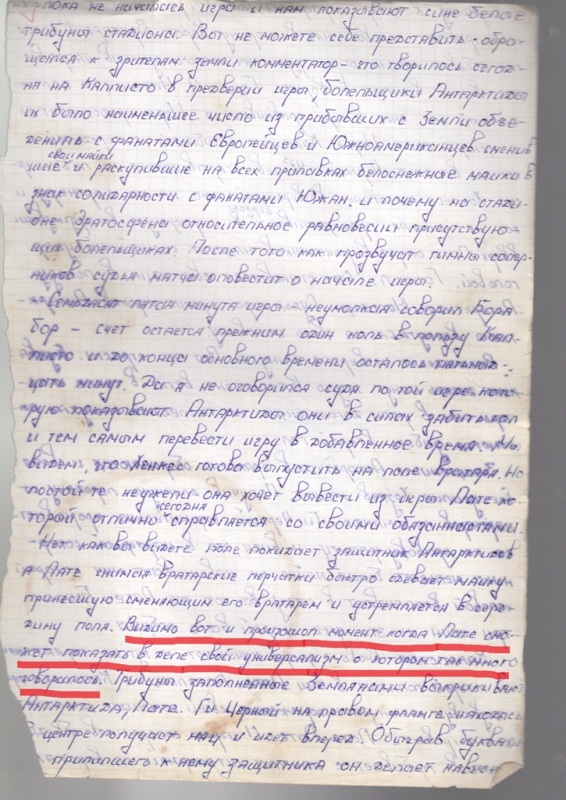 пока не началась игра и нам показывают сине белые
трибуны стадиона. Вы не можете себе представить - обра-
щался к зрителям земли комментатор - что творилось сегод-
ня на Каллисто в предверии игры, болельщики Антарктиды
их было наименьшее число из прибывших с Земли объе-
денились с фанатами Европейцев и Южноамериканцев сменив
свои майки
шие и раскупившие на всех прилавках белоснежные майки в
знак солидарности с фанатами Южан. И почему на стади-
оне Эратосфена относительное равновесии присутствую-
щих болельщиках. После того как прозвучат гимны сопер-
ников судья матча оповестит о начале игры.
- Семьдесят пятая минута игры - неумолкая говорил Бора
бор - счет остается прежним один ноль в пользу Кал-
листо и до конца основного времени осталось пятьнад-
цать минут. Да я не оговорился судя по той игре кото-
рую показывают Антарктида они в силах забить гол
и тем самым перевести игру в добавленное время. Мы
видем, что Хенкес готова выпустить на поле вратаря. Но
постойте неужели она хочет вывести из игры Лате ко-
сегодня
торой отлично справляется со своими обязанностями.
- Нет как вы видете поле покидает защитник Антарктидов
а Лате снимая вратарские перчатки быстро одевает майку
принесшую сменяющим его вратарем и устремляется в сере-
дину поля. Видимо вот и произошол момент когда Лате смо-
жет показать в деле свой универсализм о котором так много
говорилось. Трибуны заполненные Землянами выкрикивают
Антарктида, Лате. Ги Черной на правом фланге находясь
в центре получает мяч и идет вперед. Обыграв буквально
прилипшего к нему защитника он делает навес